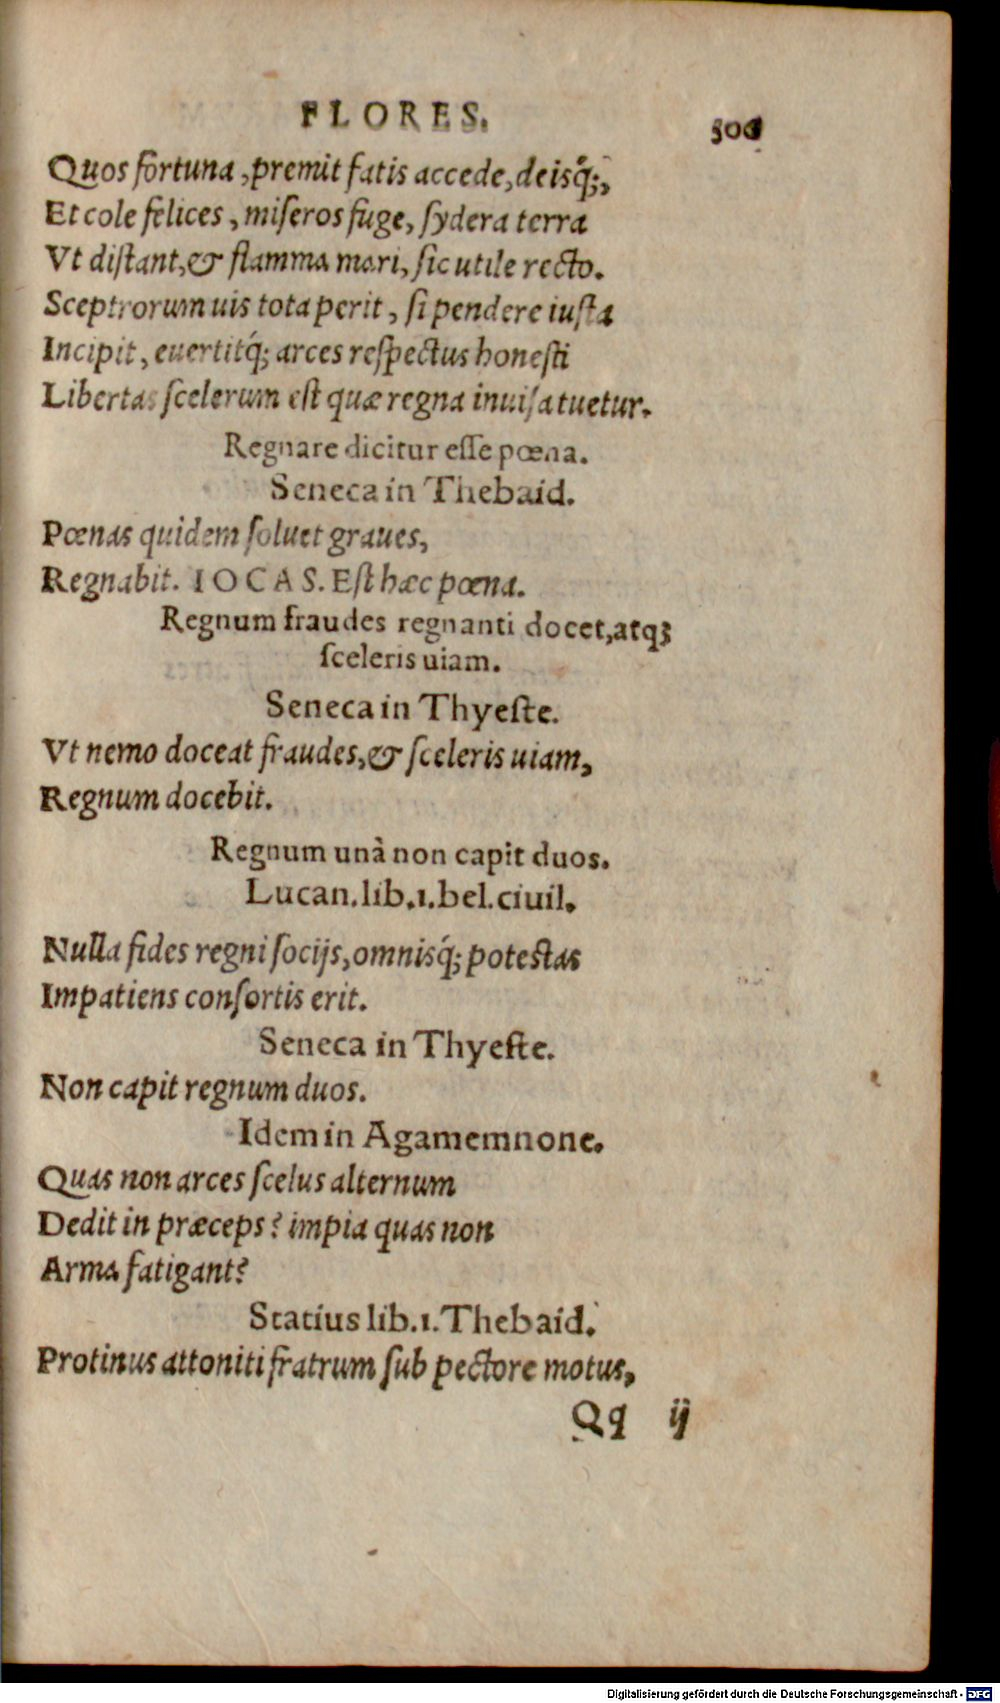 FLORES.
Quos fortuna, premit fatis accede, deisq́;,
Et cole felices, miseros fuge, sydera terra
Vt distant, & flamma mari, sic utile recto.
Sceptrorum uis tota perit, si pendere iusta
Incipit, euertitq́; arces respectus honesti
Libertas scelerum est quæ regna inuisa tuetur.
Regnare dicitur esse pœna.
Seneca in Thebaid.
Pœnas quidem soluet graues,
Regnabit. IOCAS. Est hæc pœna.
Regnum fraudes regnanti docet, atq;
sceleris uiam.
Seneca in Thyeste.
Vt nemo doceat fraudes, & sceleris uiam,
Regnum docebit.
Regnum unà non capit duos.
Lucan. lib. 1. bel. ciuil.
Nulla fides regni socijs, omnisq́; potestas
Impatiens consortis erit.
Seneca in Thyeste.
Non capit regnum duos.
Idem in Agamemnone.
Quas non arces scelus alternum
Dedit in præceps? impia quas non
Arma fatigant?
Statius lib. 1. Thebaid.
Protinus attoniti fratrum sub pectore motus,
Qq ij
Digitalisierung gefördert durch die Deutsche Forschungsgemeinschaft - DFG